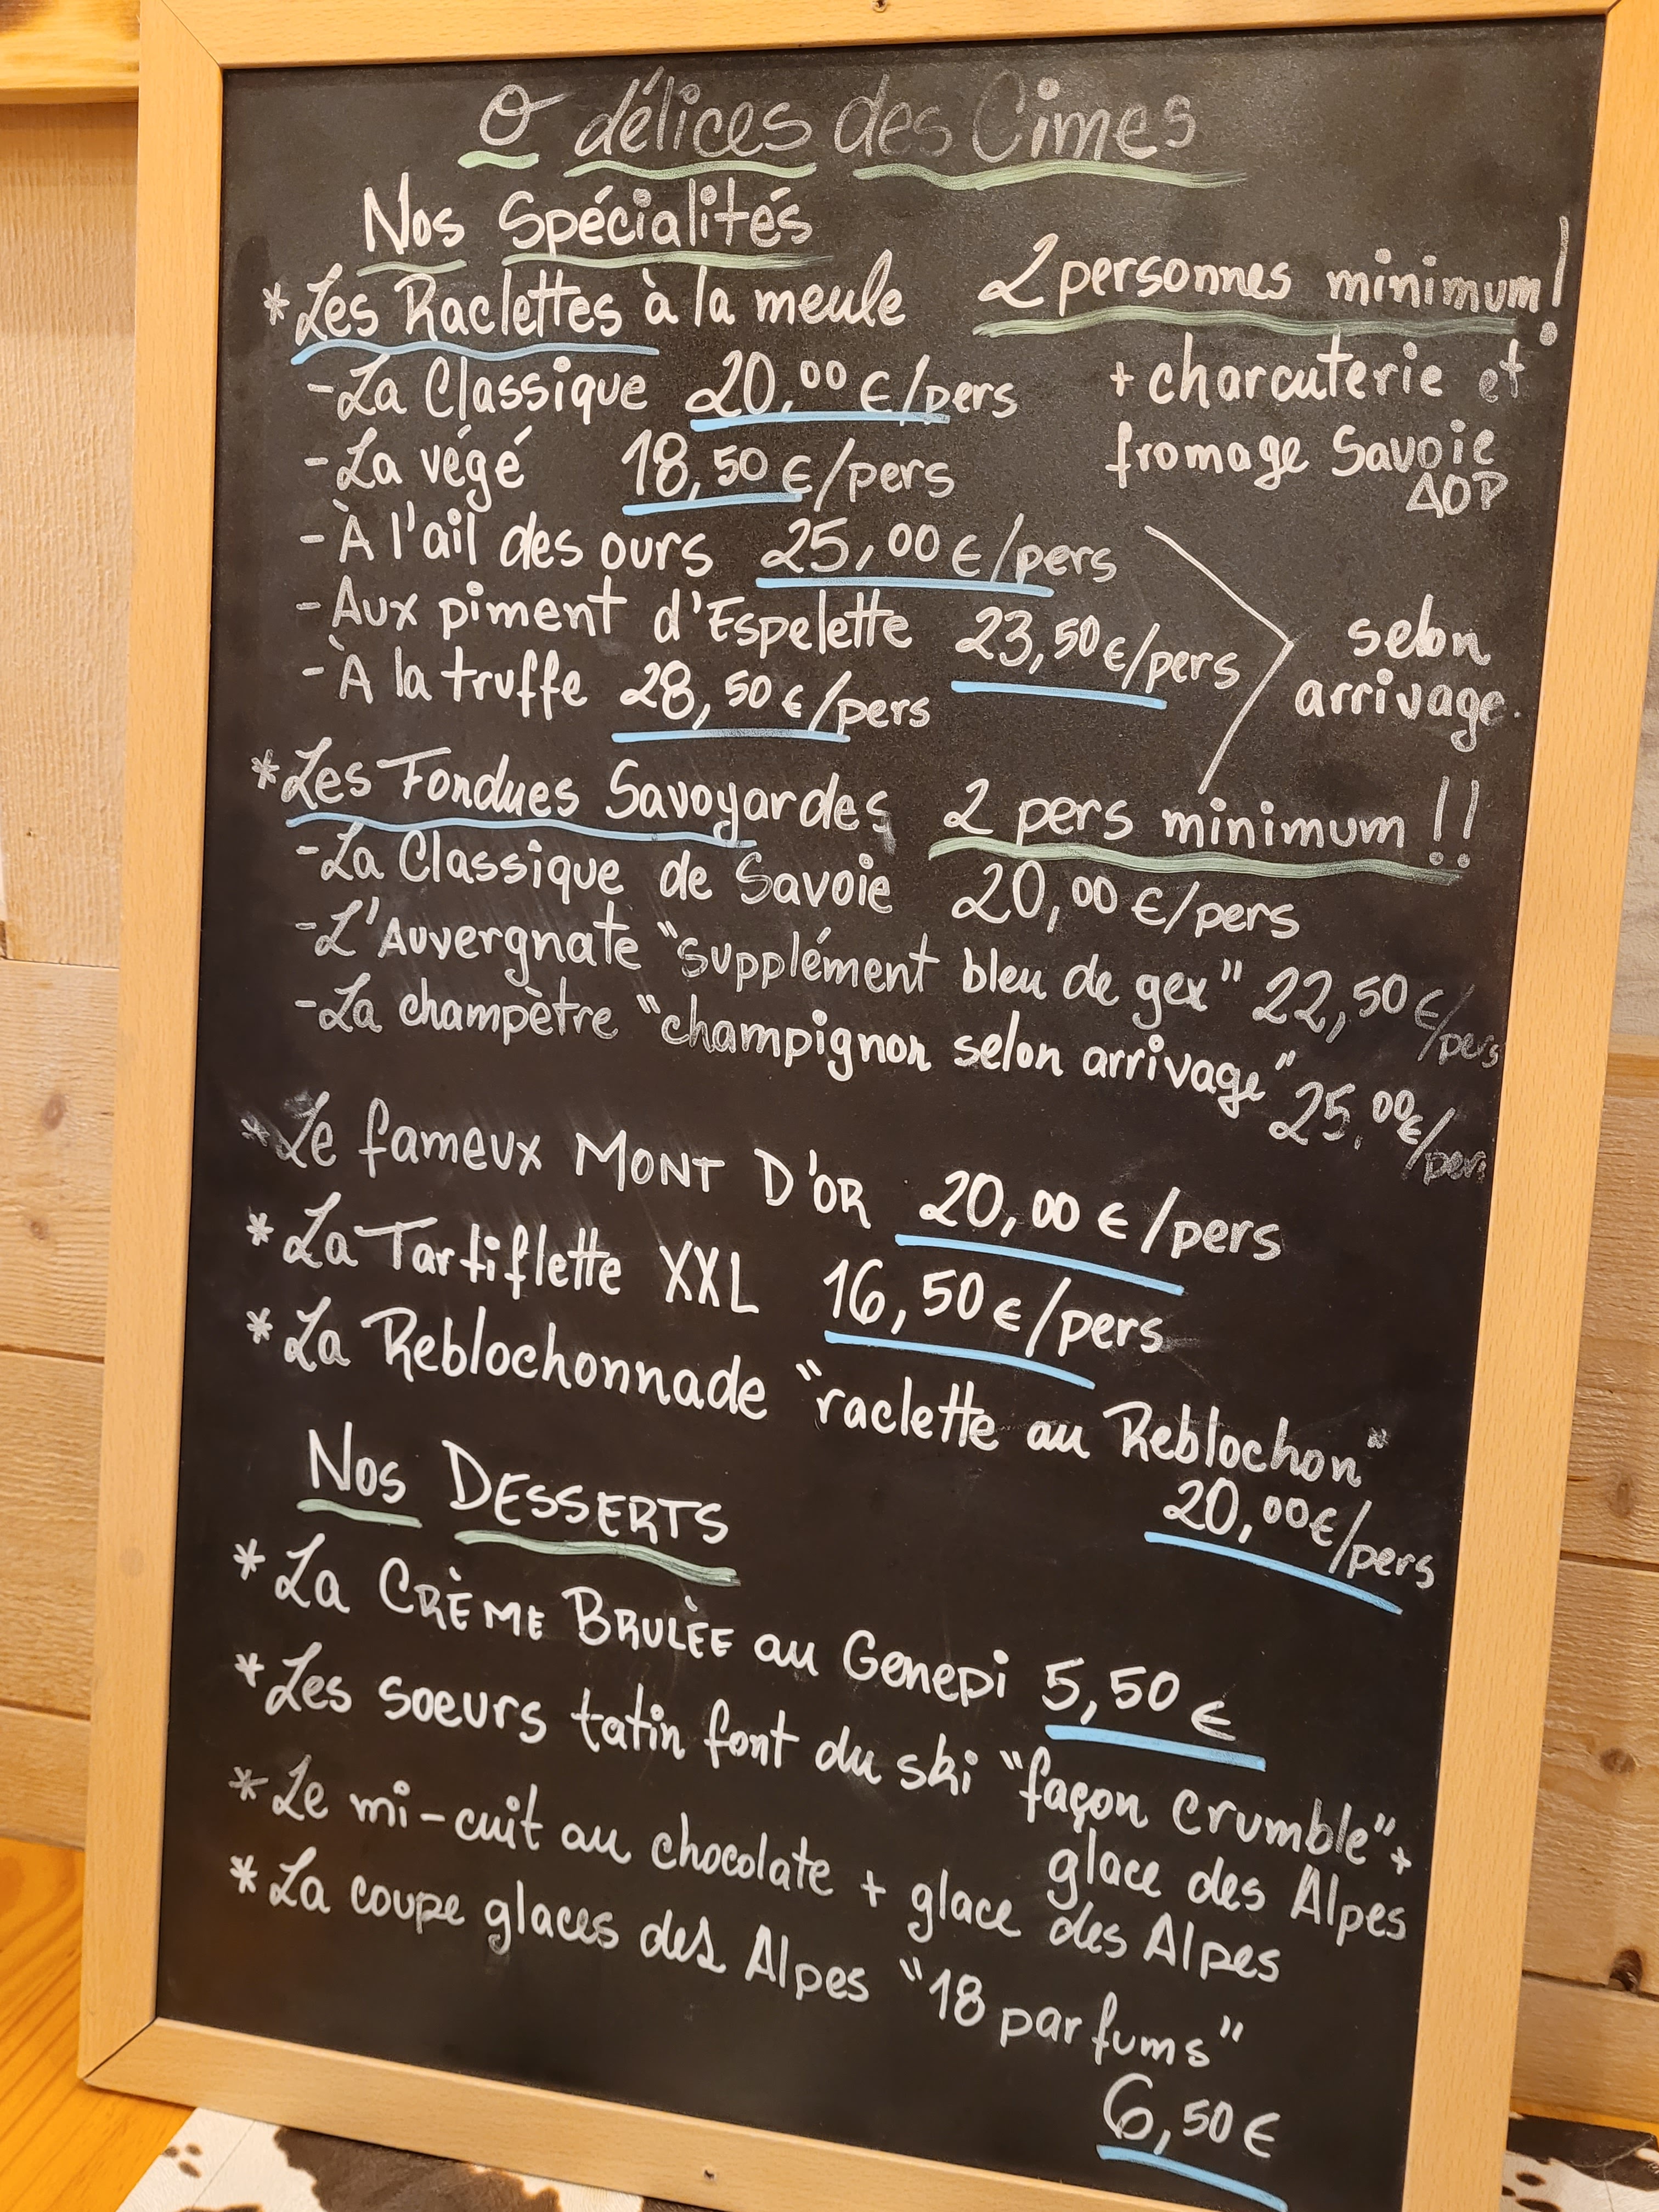 O délices des Cimes
Nos Spécialités
*Les Raclettes à la meule 2 personnes minimum!
-La Classique 20,00 €/pers + charcuterie et
-La végé 18,50 €/pers fromage Savoie
AOP
-À l'ail des ours 25,00 €/pers
-Aux piment d'Espelette 23,50 €/pers selon
-À la truffe 28,50 €/pers arrivage.
*Les Fondues Savoyardes 2 pers minimum !!
-La Classique de Savoie 20,00 €/pers
-L'Auvergnate "supplément bleu de gex" 22,50 €/pers
-La champètre "champignon selon arrivage" 25.00€/pers
*Le fameux MONT D'OR 20,00 €/pers
*La Tartiflette XXL 16,50 €/pers
*La Reblochonnade "raclette au Reblochon"
20,00€/pers
Nos DESSERTS
*La CRÈME BRULÈE au Genepi 5,50 €
*Les soeurs tatin font du ski "façon crumble"+
glace des Alpes
*Le mi-cuit au chocolate + glace des Alpes
*La coupe glaces des Alpes "18 parfums"
6,50 €